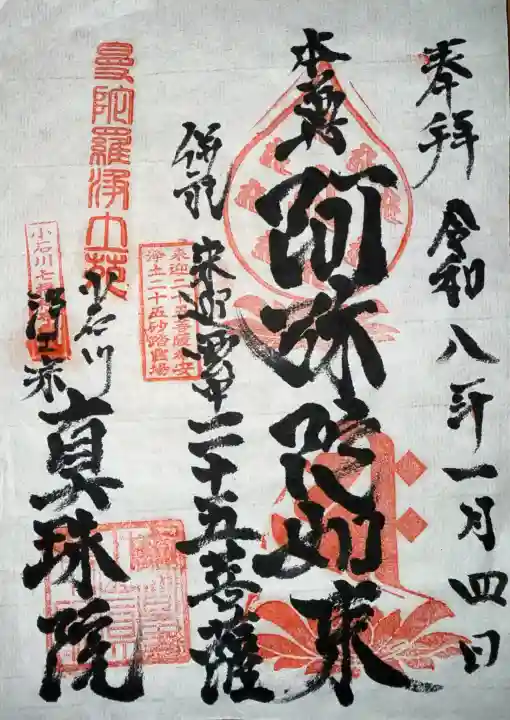 奉拝 令和八年一月四日
本尊 阿弥陀如来
併記 来迎聖衆二十五菩薩
来迎二十五菩薩奉安
浄土二十五砂踏霊場
曼陀羅浄土苑
小石川七
小石川
浄土宗 真珠院